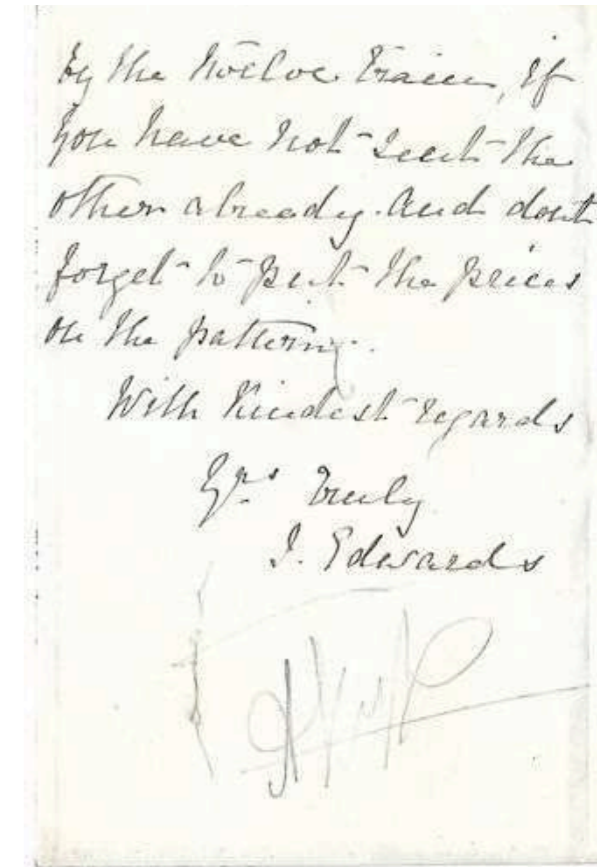 by the twelve train, if
you have not sent the
other already. And dont
forget to put the prices
on the pattern.
With kindest regards
Yrs truly
J. Edwards